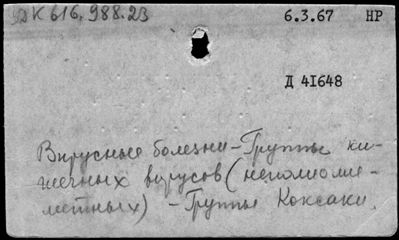 УДК 616.988.23 6.3.67 НР
Д 41648
Вирусные болезни - Группы ки-
шечных вирусов (неполиомие-
литных) - Группы Коксаки.